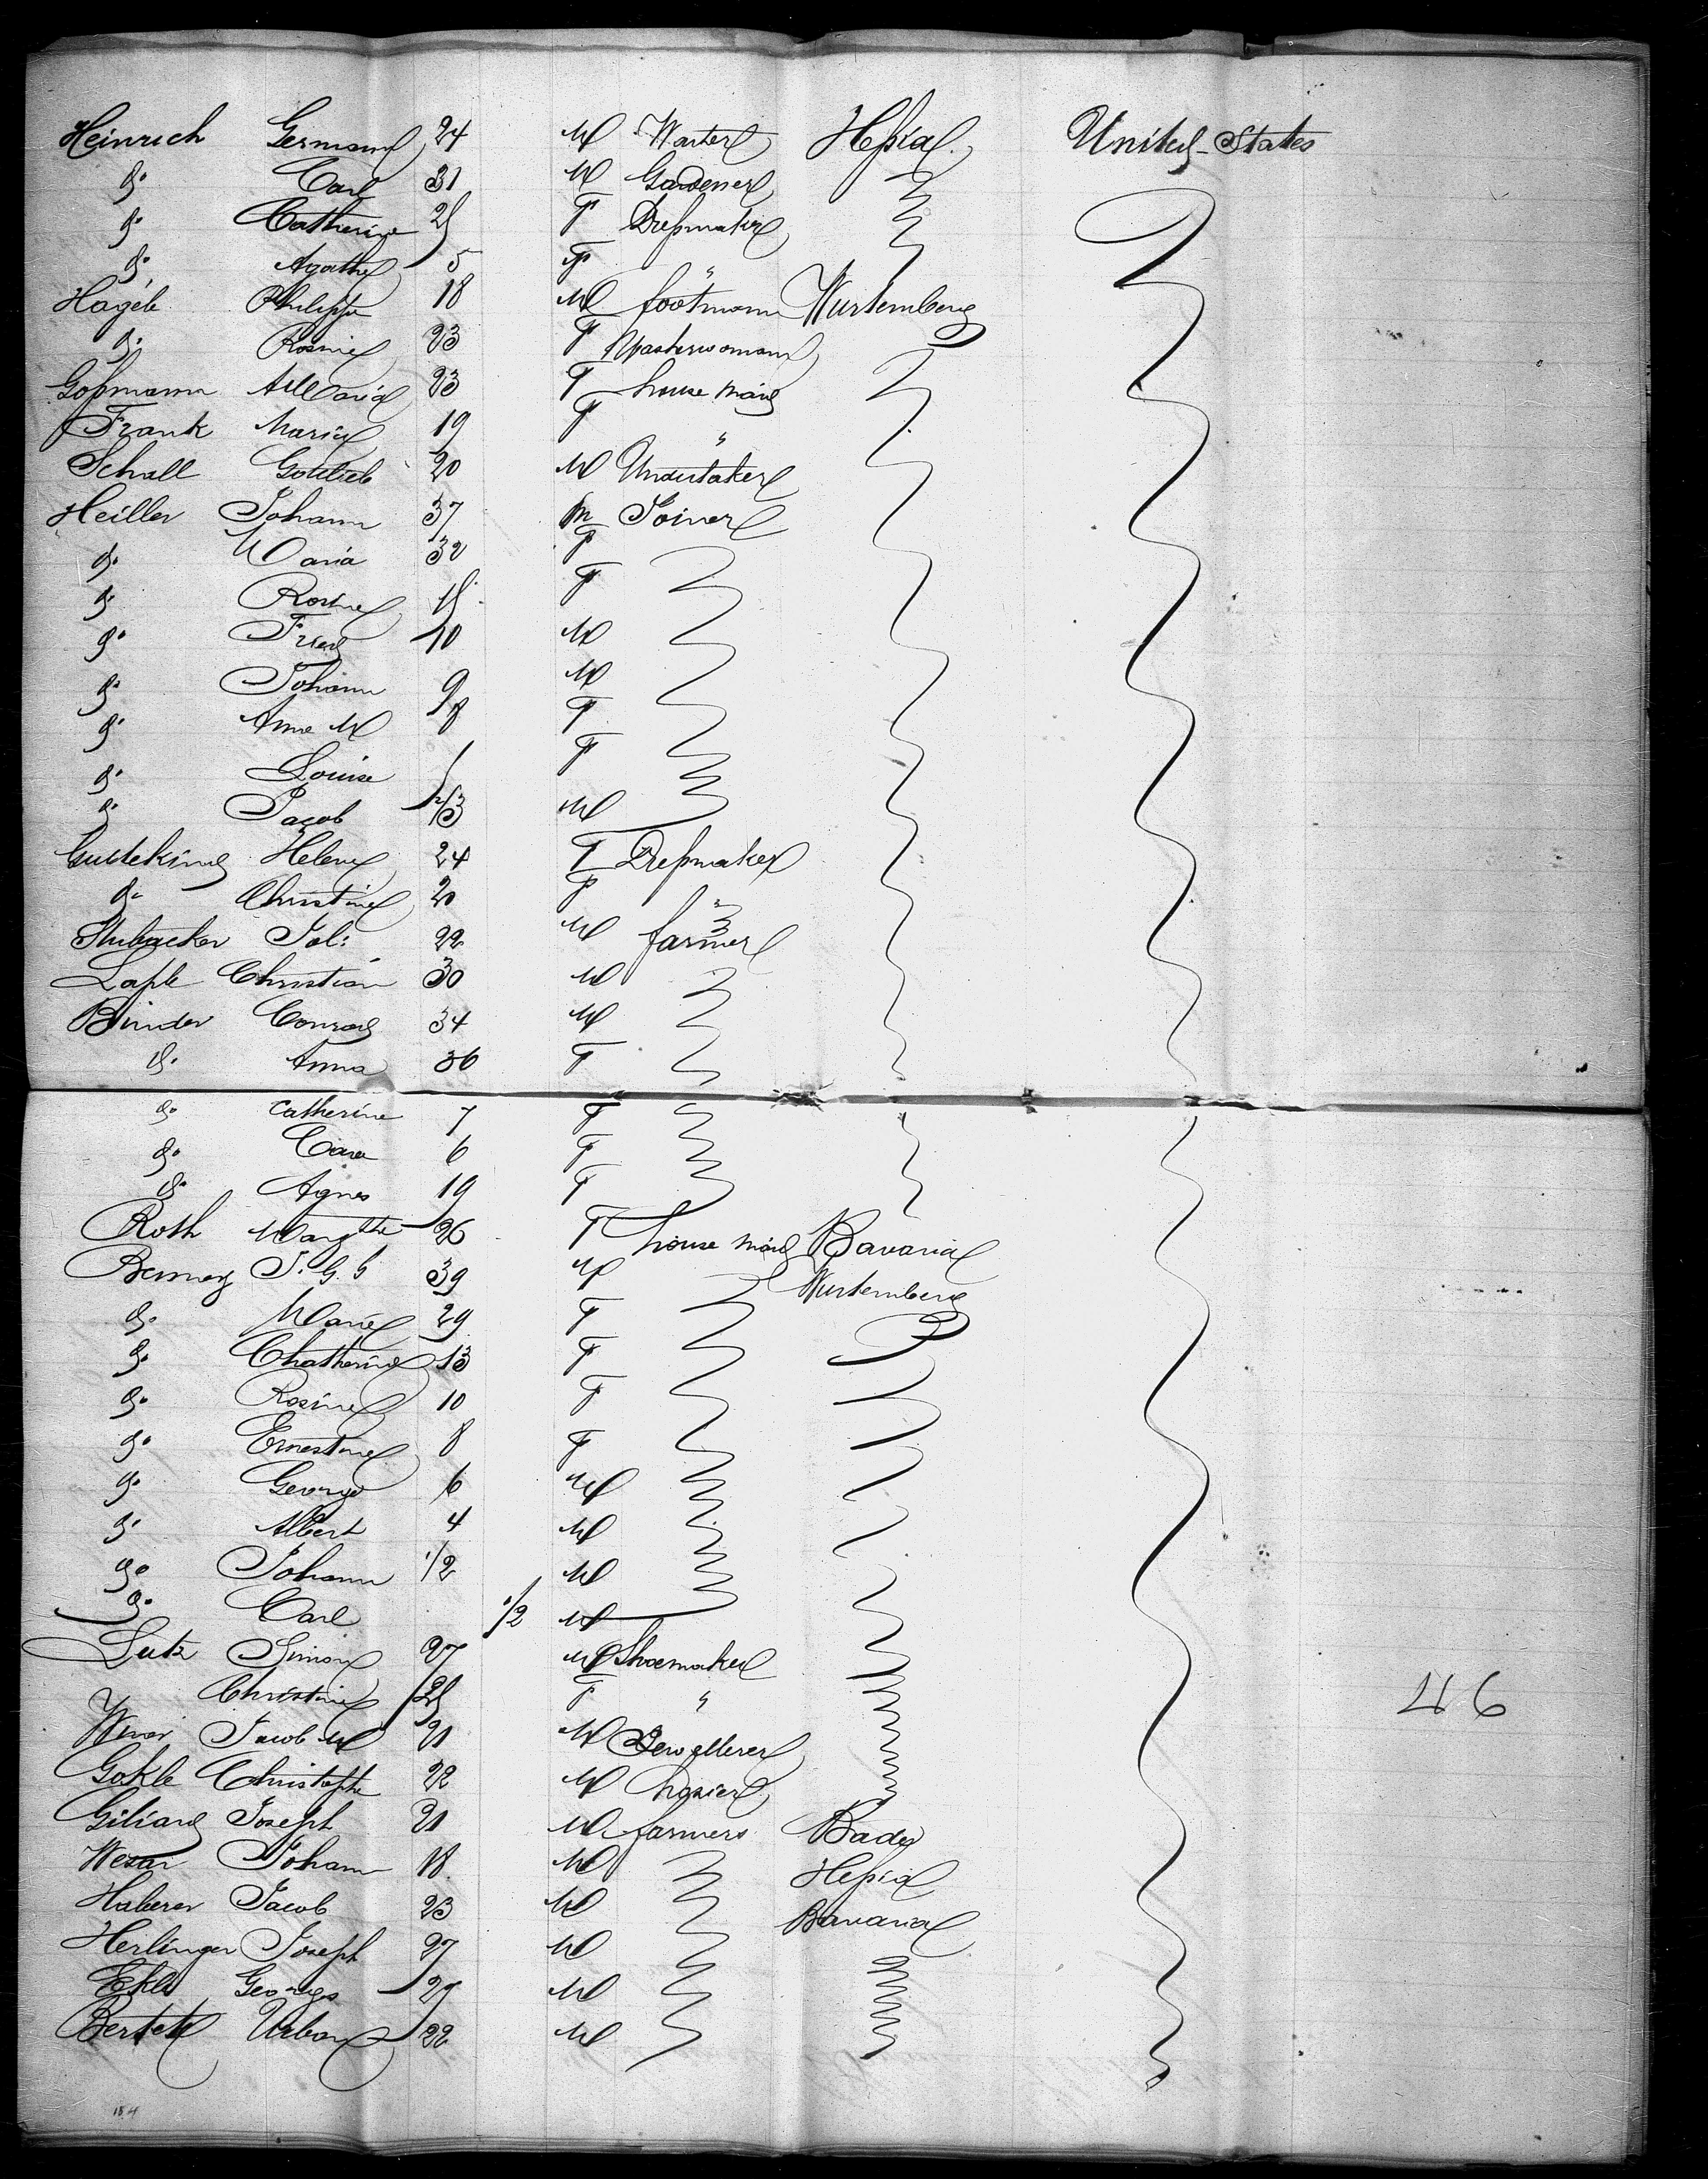 Heinrich Germann 24 M Waiter Hessia United-States
do Carl 31 M Gardener
do Catherine 25 F Dressmaker
do Agathe 5 F "
Hägele Philipp 18 M footmann Wurtemberg
do Rosine 23 F Washerwomann
Gossmann A Maria 23 F house maid
Frank Maria 19 F "
Schall Gottlieb 20 M Undertaker
Heiller Johann 37 M Joiner
do Maria 32 F
do Rosine 15 F
do Fried 10 M
do Johann 9 M
do Anna M 8 F
do Louise F
do Jacob M
Gutekind Helene 24 F Dressmaker
do Christine 20 F "
Joh: 22 M farmer
Christian 30 M
Binder Conrad 34 M
do Anna 36 F
do Catherine 7 F
do Cara 6 F
do Agnes 19 F
Roth Margthe 26 F house maid Bavaria
J. G. 39 M Wurtemberg
do Marie 29 F
do Chatherine 13 F
do Rosine 10 F
do Ernestine 8 F
do George 6 M
do Albert 4 M
do Johann 1/2 M
do Carl 1/2 M
Lutz Simon 27 M Shoemaker
Christine 25 F "
Jacob M 21 M Jewellerer
Gokle Christoph 22 M hosier
Giliard Joseph 21 M farmers Baden
Wesar Johann 18 M Hessia
Haberer Jacob 23 M Bavaria
Herlinger Joseph 27 M
Ekle George 27 M
Urban 22 M
46
184